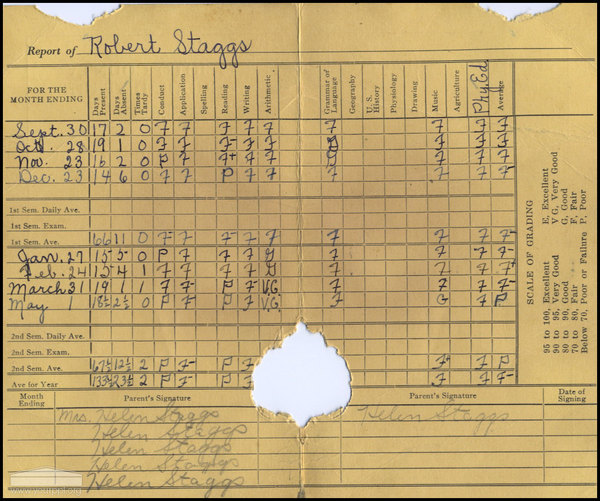 Report of Robert Staggs
FOR THE MONTH ENDING Days Present Days Absent Times Tardy Conduct Application Spelling Reading Writing Arithmetic Grammar of Language Geography U.S. History Physiology Drawing Music Agriculture Phy. Ed Average
Sept. 30 17 2 0 F F F F F F F F F
Oct. 28 19 1 0 F F F- F F F F F
Nov. 23 16 2 0 P F F+ F F G F F F
Dec. 23 14 6 0 F F P F F F F F F
1st Sem. Daily Ave.
1st Sem. Exam.
1st Sem. Ave. 66 11 0 F- F F- F F F F F F-
Jan. 27 15 5 0 P F F- F G F F F F-
Feb. 24 15 4 1 F F F F G F F F F+
March 31 19 1 1 F F- P F- V.G. F F F F-
May 1 18½ 2½ 0 P F- P F V.G. F G F P
2nd Sem. Daily Ave.
2nd Sem. Exam.
2nd Sem. Ave. 67½ 12½ 2 P F- P F F+ F P
Ave for Year 133½ 23½ 2 P F P F F F F-
SCALE OF GRADING
95 to 100, Excellent E, Excellent
90 to 95, Very Good V G, Very Good
80 to 90, Good G, Good
70 to 80, Fair F, Fair
Below 70, Poor or Failure P, Poor
Month Ending Parent's Signature Parent's Signature Date of Signing
Mrs. Helen Staggs Helen Staggs
Helen Staggs
Helen Staggs
Helen Staggs
Helen Staggs